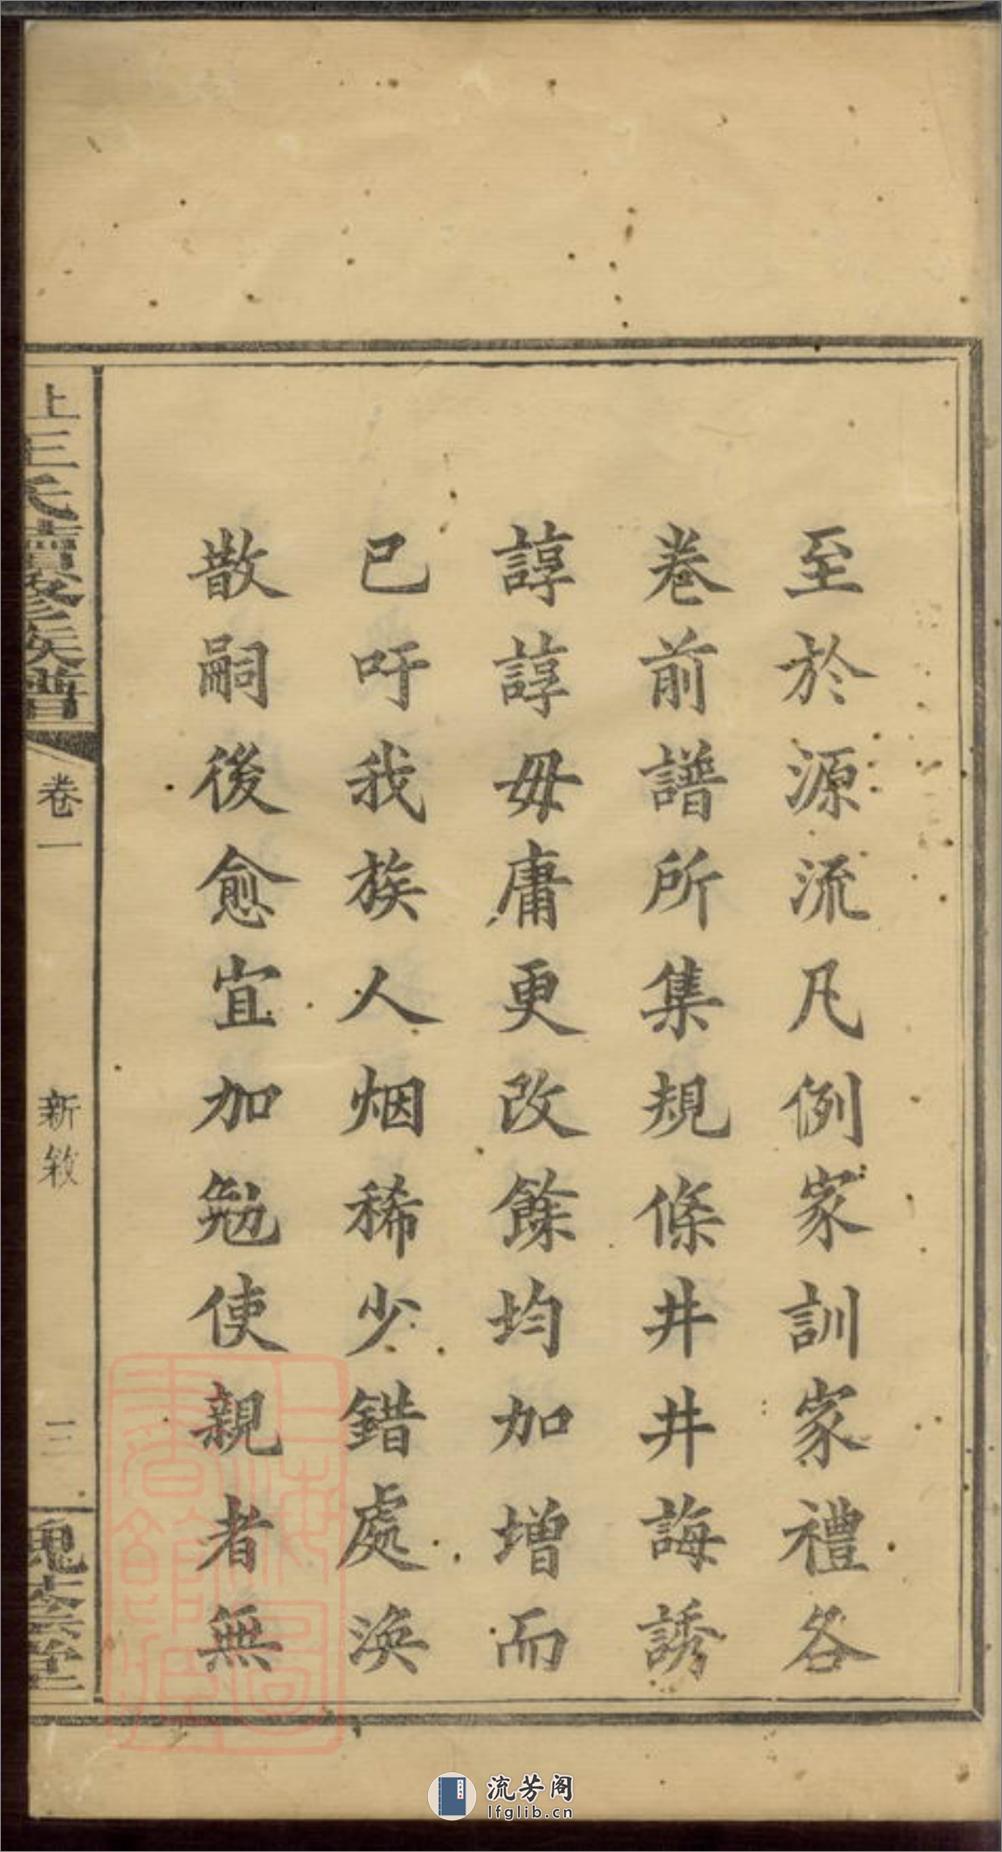 至於源流凡例家訓家禮各
卷前譜所集規條井井誨誘
諄諄毋庸更改餘均加增而
已吁我族人烟稀少錯處渙
散嗣後愈宜加勉使親者無
上王氏續修族譜
卷一
新敘
三
槐蔭堂
上海圖書館藏
流芳阁
lfglib.cn